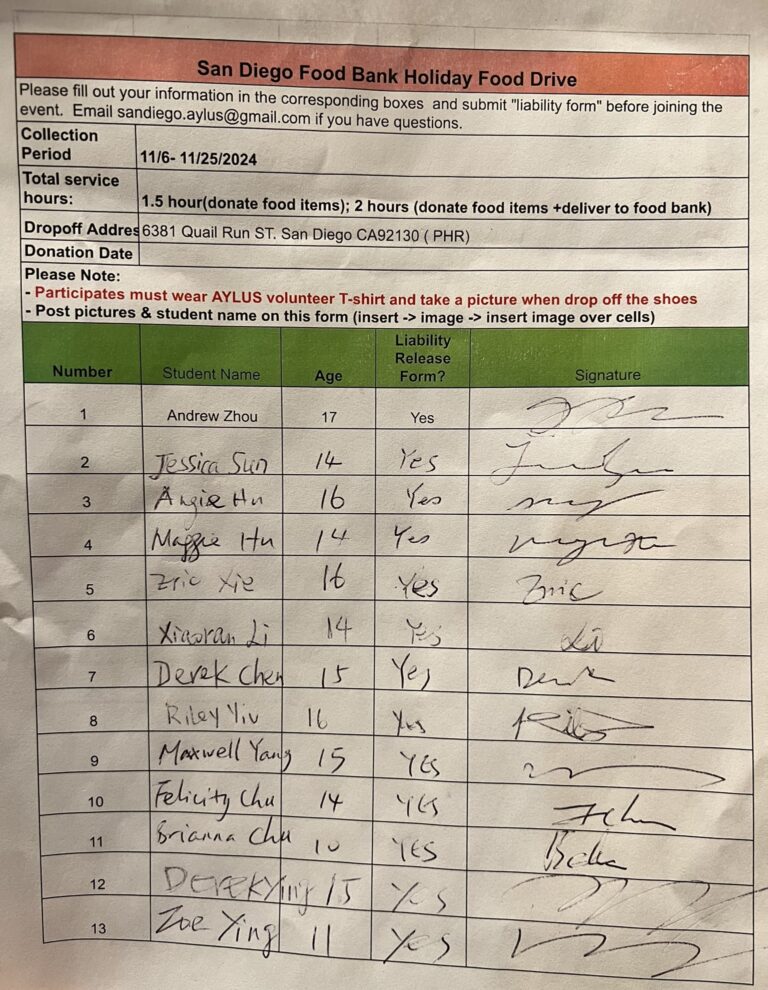 San Diego Food Bank Holiday Food Drive
Please fill out your information in the corresponding boxes and submit "liability form" before joining the
event. Email sandiego.aylus@gmail.com if you have questions.
Collection
Period 11/6- 11/25/2024
Total service
hours: 1.5 hour(donate food items); 2 hours (donate food items +deliver to food bank)
Dropoff Addres 6381 Quail Run ST. San Diego CA92130 ( PHR)
Donation Date
Please Note:
- Participates must wear AYLUS volunteer T-shirt and take a picture when drop off the shoes
- Post pictures & student name on this form (insert -> image -> insert image over cells)
Number Student Name Age Liability Release Form? Signature
1 Andrew Zhou 17 Yes
2 Jessica Sun 14 Yes
3 Angie Hu 16 Yes
4 Maggie Hu 14 Yes
5 Eric Xie 16 Yes Eric
6 Xiaoran Li 14 Yes Li
7 Derek Chen 15 Yes
8 Riley Yiu 16 Yes
9 Maxwell Yang 15 YES
10 Felicity Chu 14 YES
11 Brianna Chu 10 YES
12 DEREK Ying 15 Yes
13 Zoe Ying 11 Yes